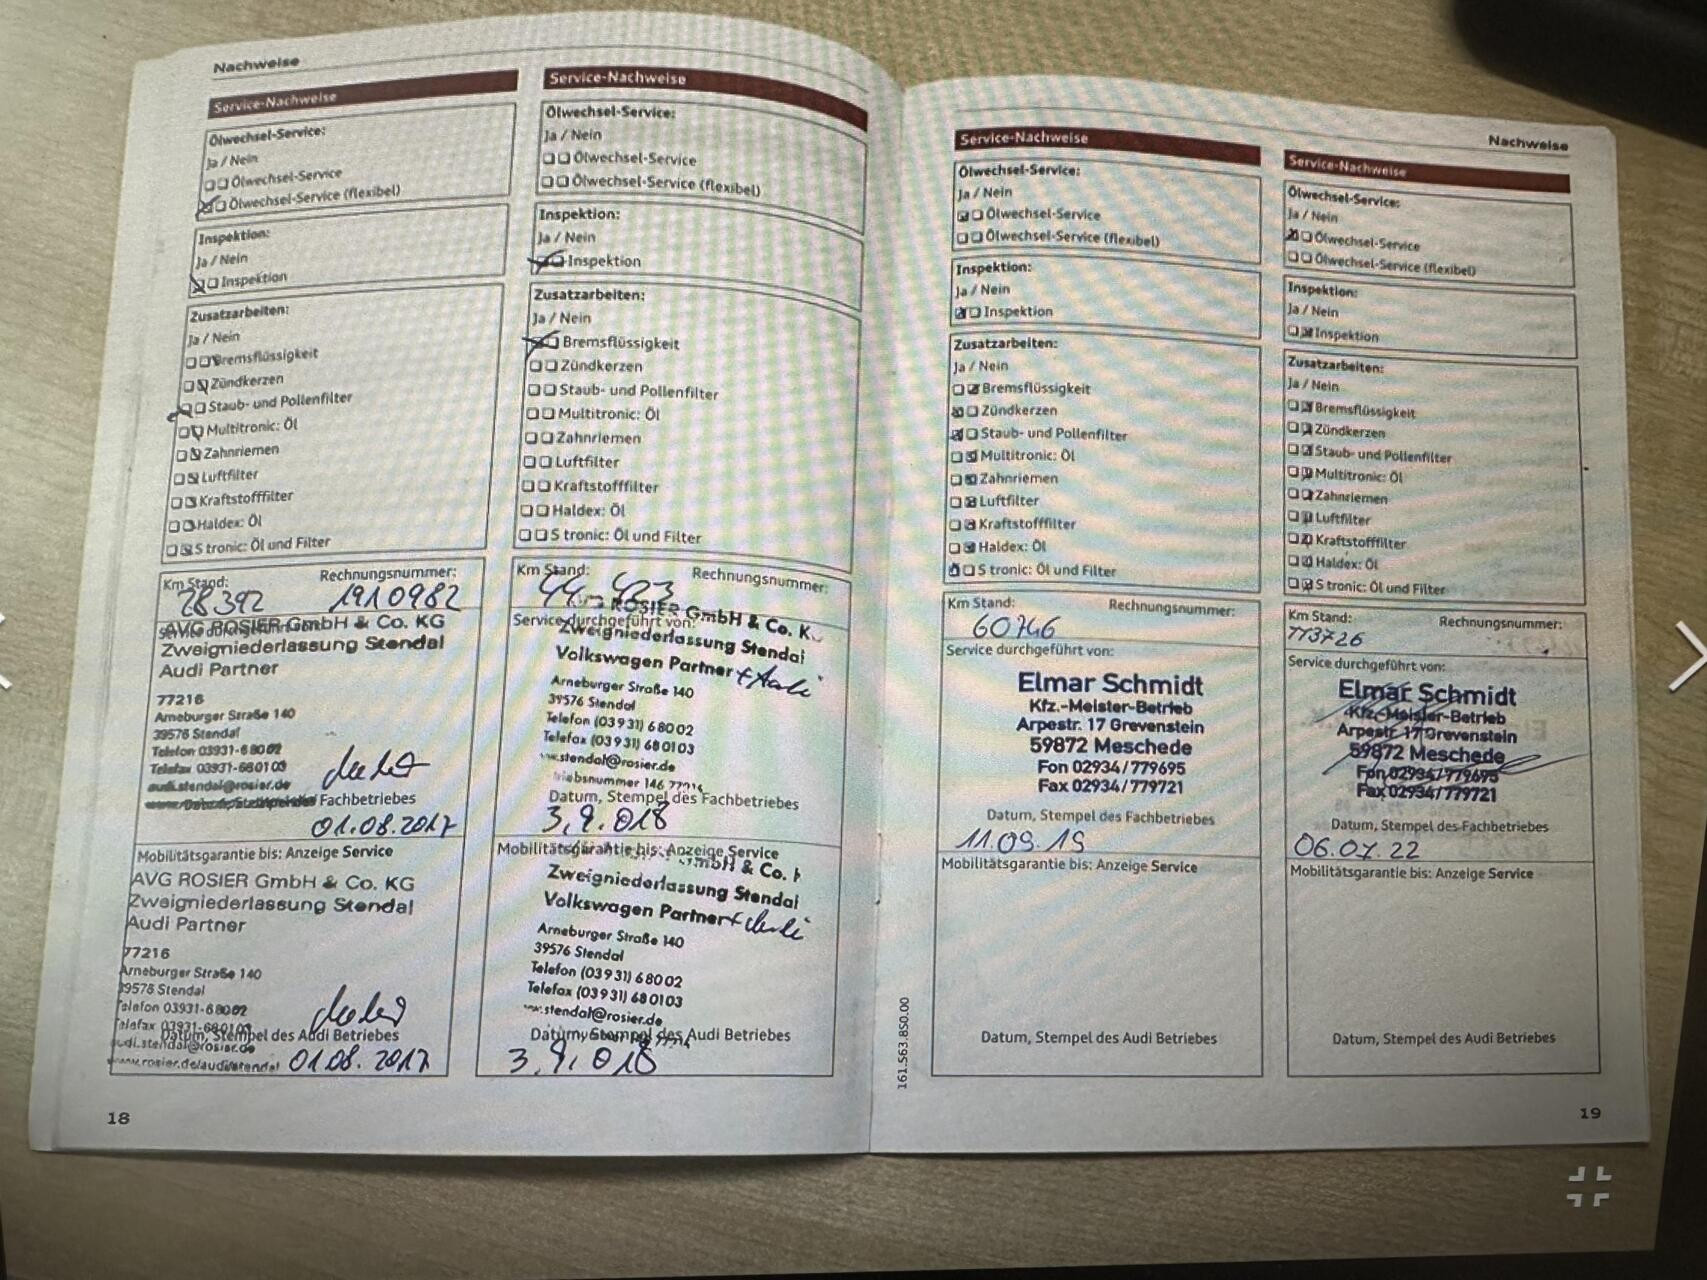 Nachweise
Service-Nachweise
Ölwechsel-Service:
Ja / Nein
Ölwechsel-Service
Ölwechsel-Service (flexibel)
Inspektion:
Ja / Nein
Inspektion
Zusatzarbeiten:
Ja / Nein
Bremsflüssigkeit
Zündkerzen
Staub- und Pollenfilter
Multitronic: Öl
Zahnriemen
Luftfilter
Kraftstofffilter
Haldex: Öl
S tronic: Öl und Filter
Km Stand: Rechnungsnummer:
28392 1910982
AVG ROSIER GmbH & Co. KG
Zweigniederlassung Stendal
Audi Partner
77216
Arneburger Straße 140
39576 Stendal
Telefon 03931-68002
Telefax 03931-680103
audi.stendal@rosier.de
Fachbetriebes
01.08.2017
Mobilitätsgarantie bis: Anzeige Service
AVG ROSIER GmbH & Co. KG
Zweigniederlassung Stendal
Audi Partner
77216
Arneburger Straße 140
39576 Stendal
Telefon 03931-68002
Telefax 03931-680103
Datum, Stempel des Audi Betriebes
audi.stendal@rosier.de
www.rosier.de/audi/stendal 01.08.2017
18
Service-Nachweise
Ölwechsel-Service:
Ja / Nein
Ölwechsel-Service
Ölwechsel-Service (flexibel)
Inspektion:
Ja / Nein
Inspektion
Zusatzarbeiten:
Ja / Nein
Bremsflüssigkeit
Zündkerzen
Staub- und Pollenfilter
Multitronic: Öl
Zahnriemen
Luftfilter
Kraftstofffilter
Haldex: Öl
S tronic: Öl und Filter
Km Stand: Rechnungsnummer:
ROSIER GmbH & Co. K
Service durchgeführt von:
Zweigniederlassung Stendal
Volkswagen Partner
Arneburger Straße 140
39576 Stendal
Telefon (03931) 68002
Telefax (03931) 680103
stendal@rosier.de
Datum, Stempel des Fachbetriebes
3.9.018
Mobilitätsgarantie bis: Anzeige Service
Zweigniederlassung Stendal
Volkswagen Partner
Arneburger Straße 140
39576 Stendal
Telefon (03931) 68002
Telefax (03931) 680103
stendal@rosier.de
Datum, Stempel des Audi Betriebes
3.9.018
Nachweise
Service-Nachweise
Ölwechsel-Service:
Ja / Nein
Ölwechsel-Service
Ölwechsel-Service (flexibel)
Inspektion:
Ja / Nein
Inspektion
Zusatzarbeiten:
Ja / Nein
Bremsflüssigkeit
Zündkerzen
Staub- und Pollenfilter
Multitronic: Öl
Zahnriemen
Luftfilter
Kraftstofffilter
Haldex: Öl
S tronic: Öl und Filter
Km Stand: Rechnungsnummer:
60746
Service durchgeführt von:
Elmar Schmidt
Kfz.-Meister-Betrieb
Arpestr. 17 Grevenstein
59872 Meschede
Fon 02934/779695
Fax 02934/779721
Datum, Stempel des Fachbetriebes
11.09.19
Mobilitätsgarantie bis: Anzeige Service
Datum, Stempel des Audi Betriebes
161.563.850.00
Service-Nachweise
Ölwechsel-Service:
Ja / Nein
Ölwechsel-Service
Ölwechsel-Service (flexibel)
Inspektion:
Ja / Nein
Inspektion
Zusatzarbeiten:
Ja / Nein
Bremsflüssigkeit
Zündkerzen
Staub- und Pollenfilter
Multitronic: Öl
Zahnriemen
Luftfilter
Kraftstofffilter
Haldex: Öl
S tronic: Öl und Filter
Km Stand: Rechnungsnummer:
113726
Service durchgeführt von:
Elmar Schmidt
Kfz.-Meister-Betrieb
Arpestr. 17 Grevenstein
59872 Meschede
Fon 02934/779695
Fax 02934/779721
Datum, Stempel des Fachbetriebes
06.07.22
Mobilitätsgarantie bis: Anzeige Service
Datum, Stempel des Audi Betriebes
19